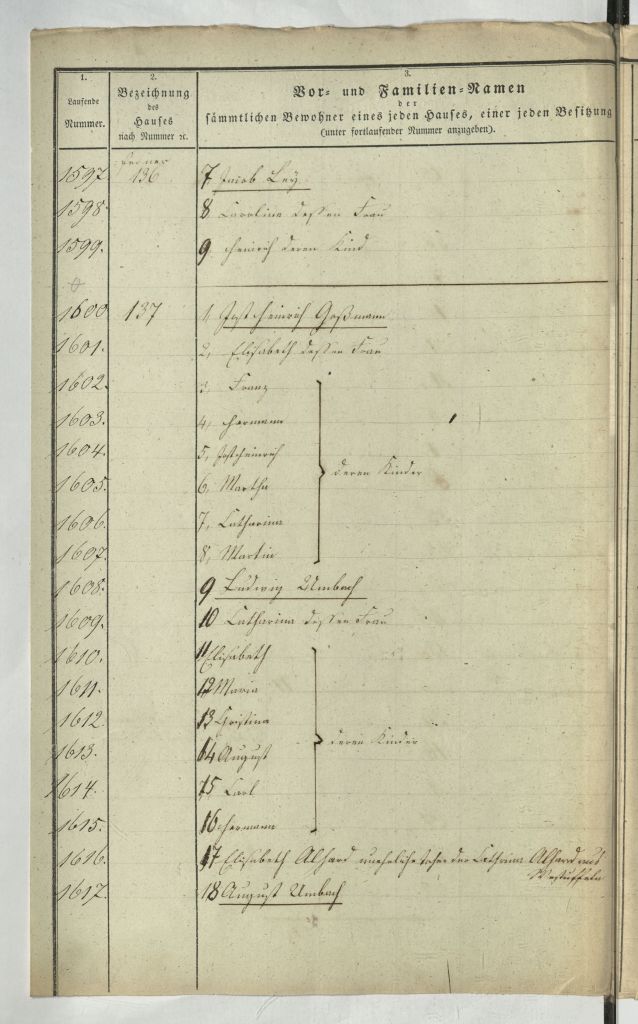 1.
2.
3.
Laufende Nummer.
Bezeichnung
des
Hauses
nach Nummer ꝛc.
Vor- und Familien-Namen
der
sämmtlichen Bewohner eines jeden Hauses, einer jeden Besitzung
(unter fortlaufender Nummer anzugeben).
ferner
1597. 136 7 Jacob Ley
1598. 8 Carolina dessen Frau
1599. 9 Heinrich deren Kind
0
1600 137 1, Jost Heinrich Goßmann
1601. 2, Elisabeth dessen Frau
1602. 3 Franz
1603. 4, Hermann
1604. 5, Jost Heinrich
deren Kinder
1605. 6, Martha
1606. 7, Catharina
1607. 8, Martin
1608. 9 Ludwig Umbach
1609. 10 Catharina dessen Frau
1610. 11 Elisabeth
1611. 12 Maria
1612. 13 Cristina
1613. 14 August deren Kinder
1614. 15 Carl
1615. 16 Hermann
1616. 17 Elisabeth Alhard uneheliche der Cathrina Alhard aus
Westuffeln
1617. 18 August Umbach